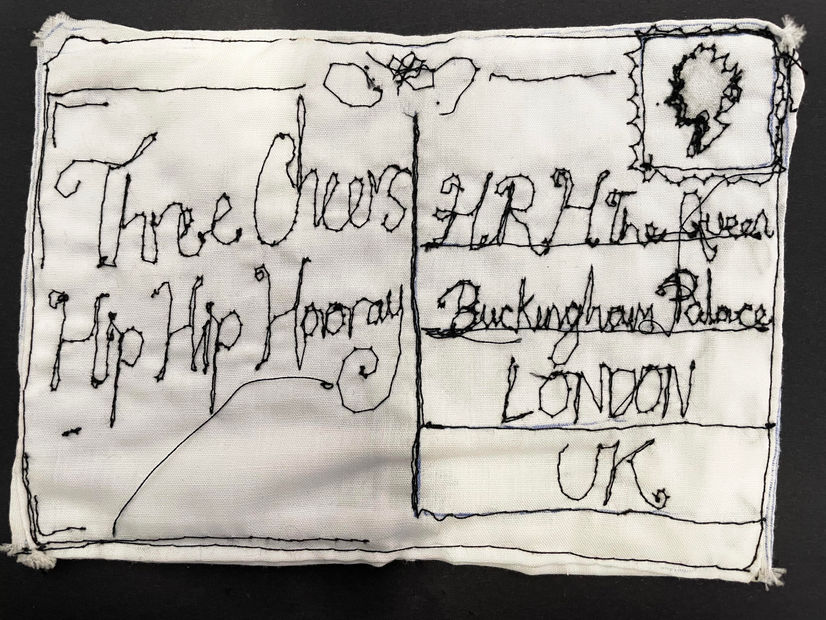 Three Cheers
Hip Hip Hooray
H.R.H The Queen
Buckingham Palace
LONDON
UK.